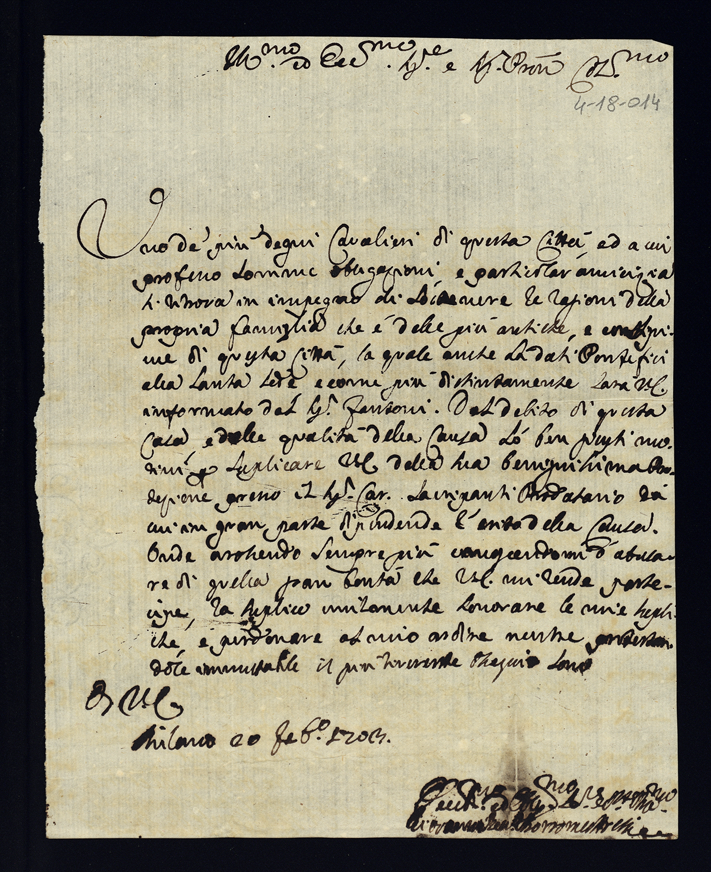 Ill.mo ed Ecc.mo Sig.re e Sig.r Pron Col.mo
4-18-014
Uno de' più degni Cavalieri di questa Città, ed a cui
professo somme obligazioni, e particolar amicizia
si ritrova in impegno di sostenere le ragioni della
propria famiglia che è delle più antiche, e
me di questa Città, la quale anche hà dati Pontefici
alla Santa Sede, e come più distintamente sarà V.E.
informato dal Sig.r Fantoni. Del debito di questa
Casa, e delle qualità della Causa hò ben giusti mo-
tivi p supplicare V.E. della sua benignissima
presso il Sig.r Car. Sacripanti Prodatario da
cui in gran parte dipende l'esito della Causa.
Onde avendo sempre più d'abusa-
re di quella gran bontà che V.E. mi rende parte-
cipe, la suplico umilmente honorare le mie supli-
che, e perdonare al mio ardire mentre protestan-
dole immutabile il più riverente ossequio sono
Di V.E.
Milano 20 Feb.o 1703.